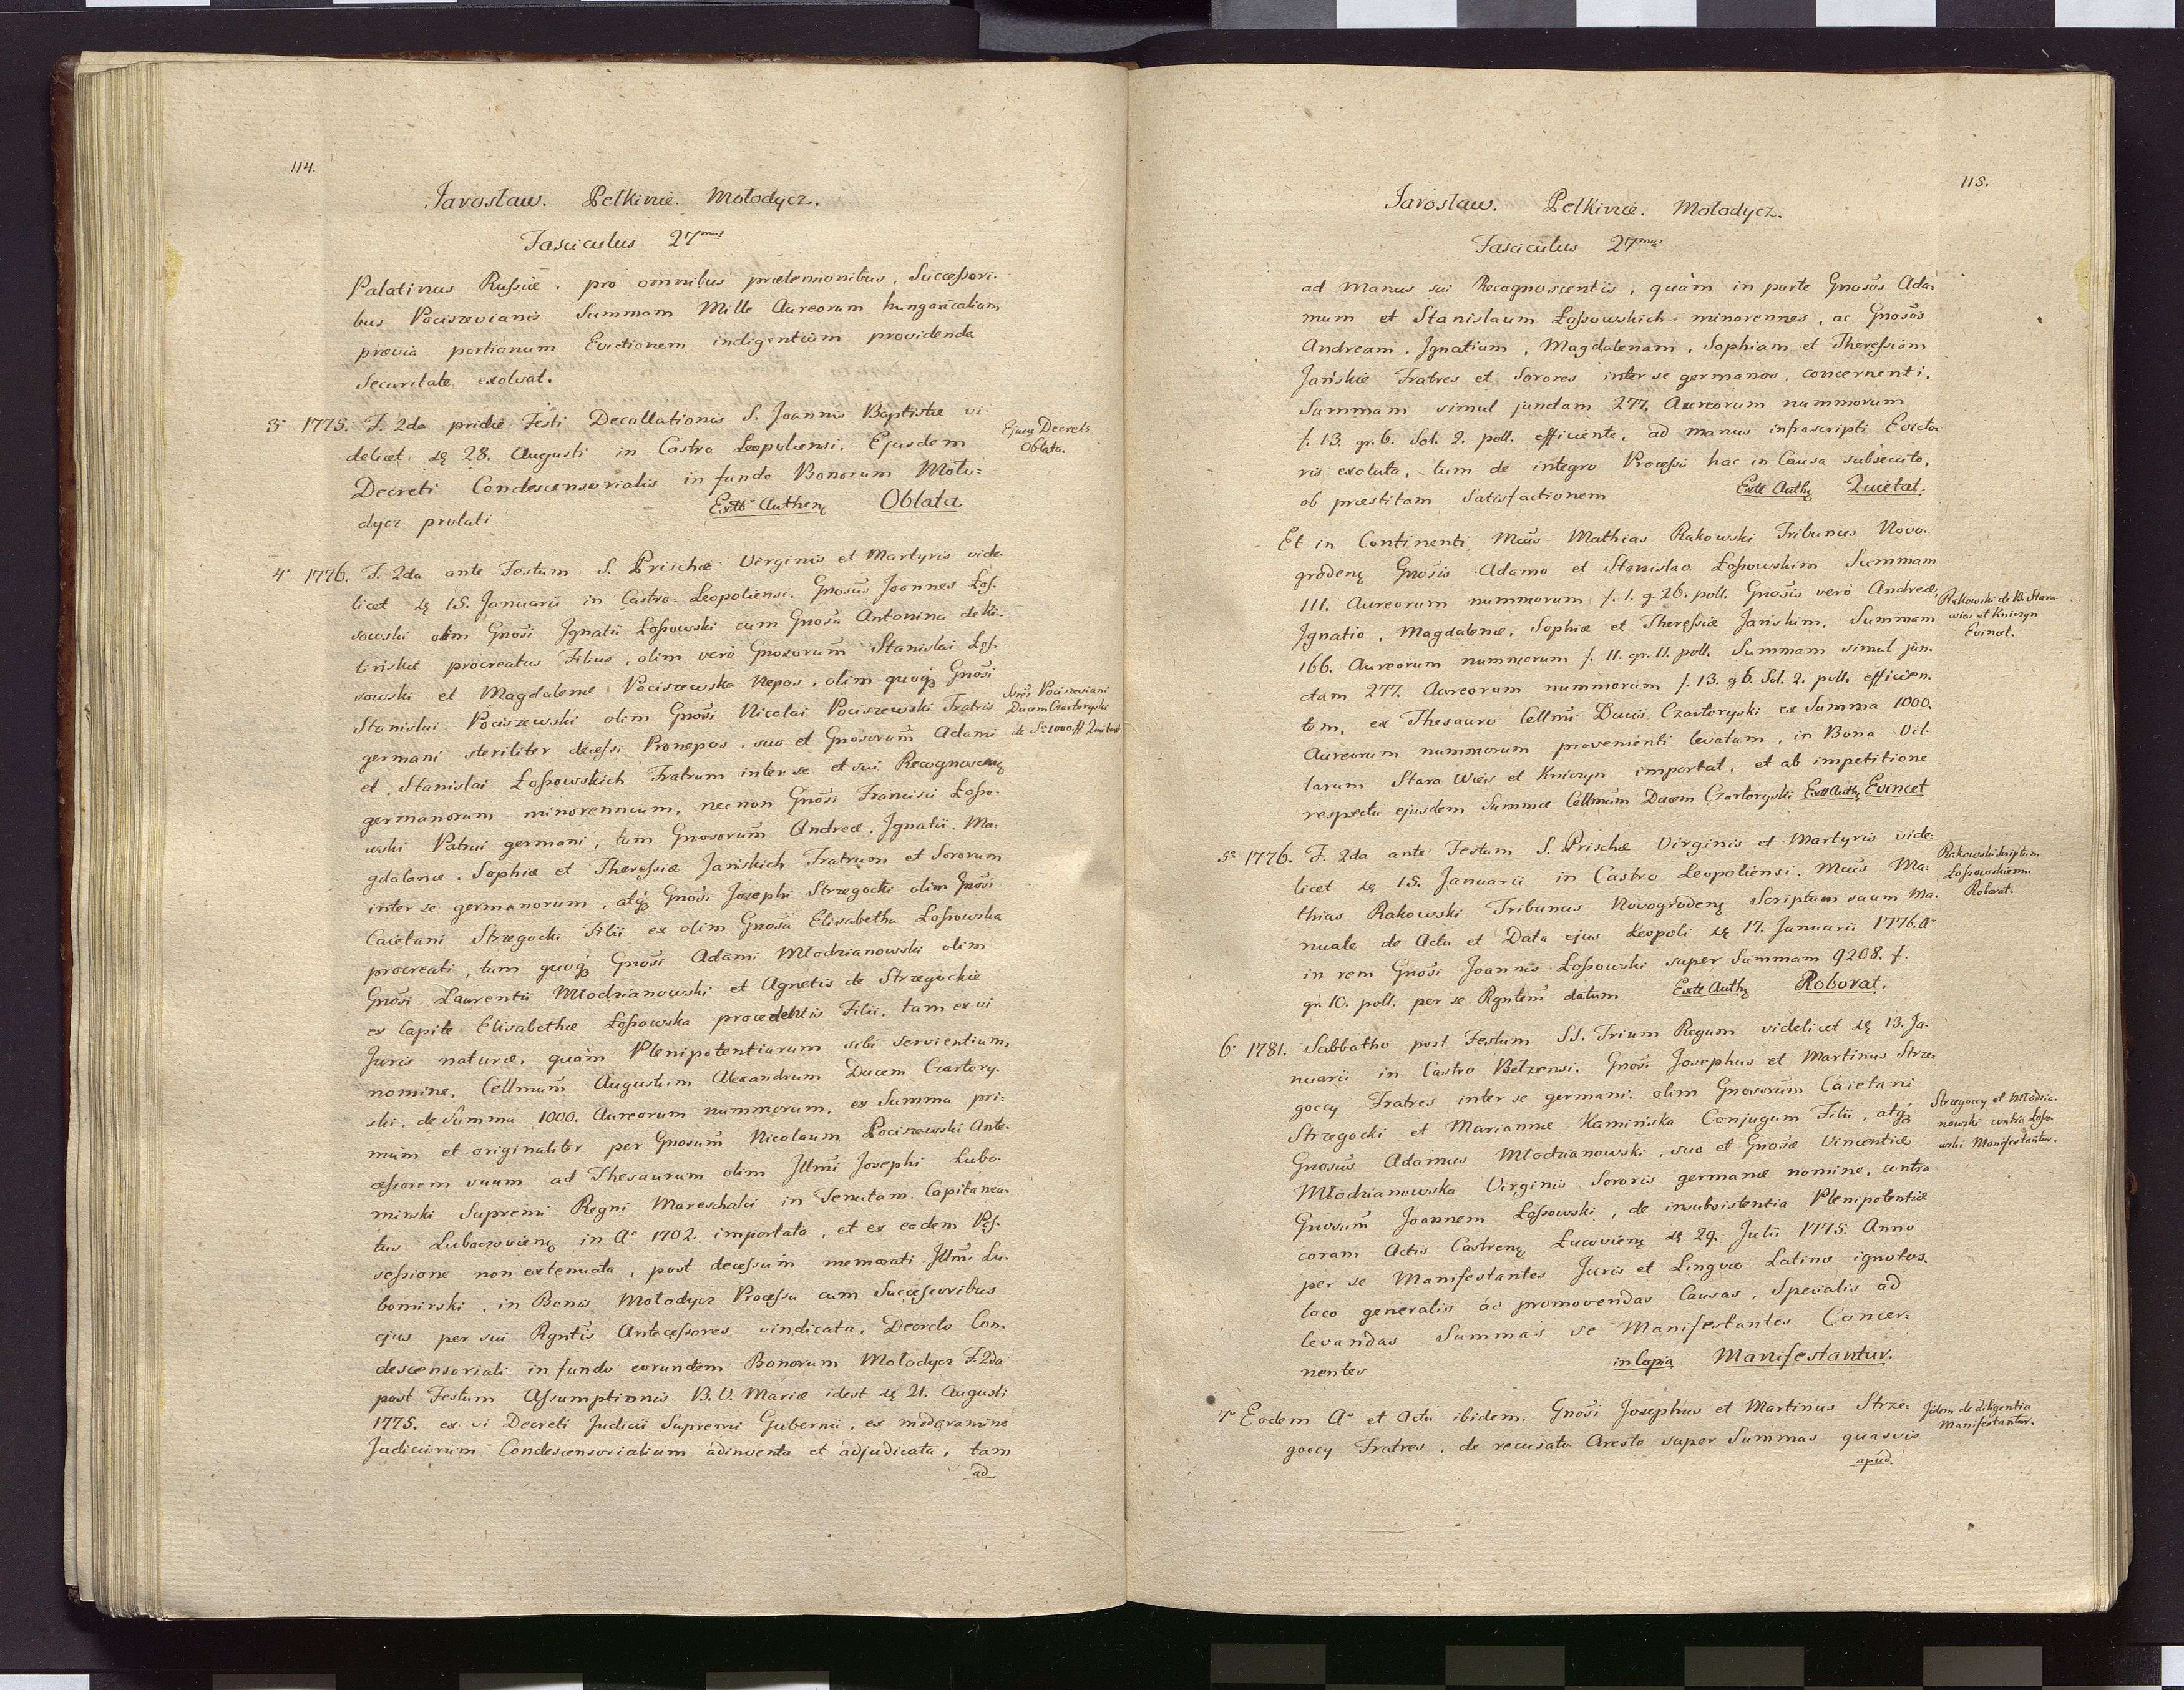 114.
Jarosław. Pełkinie. Mołodycz.
Fasciculus 27mus
Palatinus Russiæ, pro omnibus prætensionibus, Successori-
bus Pociszevianis Summam Mille Aureorum hungaricalium
prævia portionum Evictionem indigentium providenda
Securitate exolvat.
3° 1775. F. 2da pridie Festi Decollationis S. Joannis Baptistæ vi-
delicet dę 28. Augusti in Castro Leopoliensi. Ejusdem
Decreti Condescensorialis in fundo Bonorum Moło=
dycz prolati Exttô Authenę Oblata.
Ejus Decreti
Oblata.
4° 1776. F. 2da ante Festum S. Prischæ Virginis et Martyris vide-
licet dę 15. Januarii in Castro Leopoliensi. Gnosus Joannes Łos-
sowski olim Gnosi Jgnatii Łossowski cum Gnosa Antonina de
procreatus Filius, olim verò Gnosorum Stanislai Łos-
sowski et Magdalenæ Pociszewska Nepos, olim quoqꝫ Gnosi
Stanislai Pociszewski olim Gnosi Nicolai Pociszewski Fratris
germani steriliter decessi Pronepos, suo et Gnosorum Adami
et Stanislai Łossowskich Fratrum inter se et sui Recognoscenę
germanorum minorennium, nec non Gnosi Francisci Łosso-
wski Patrui germani, tum Gnosorum Andreæ, Jgnatii, Ma-
gdalenæ, Sophiæ et Theressiæ Jańskich Fratrum et Sororum
inter se germanorum, atqꝫ Gnosi Josephi Strzegocki olim Gnosi
Caietani Strzegocki Filii ex olim Gnosa Elisabetha Łossowska
procreati, tum quoqꝫ Gnosi Adami Młodzianowski olim
Gnosi Laurentii Młodzianowski et Agnetis de Strzegockie
ex Capite Elisabethæ Łossowska procedentis Filii, tam ex vi
Juris naturæ, quàm Plenipotentiarum sibi servientium,
nomine, Cellmum Augustum Alexandrum Ducem Czartory-
ski, de Summa 1000. Aureorum nummorum, ex Summa pri-
mum et originaliter per Gnosum Nicolaum Pociszewski Ante-
cessorem suum ad Thesaurum olim Jllmi Josephi Lubo-
mirski Supremi Regni Mareschalci in Tenutam Capitanea-
tus Lubaczovienę in A° 1702. importata, et ex eadem Pos-
sessione non extenuata, post decessum memorati Jllmi Lu-
bomirski, in Bonis Mołodycz Processu cum Successoribus
ejus per sui Rgntis Antecessores vindicata, Decreto Con-
descensoriali in fundo eorundem Bonorum Mołodycz F. 2da
post Festum Assumptionis B. V. Mariæ idest dę 21. Augusti
1775. ex vi Decreti Judicii Supremi Gubernii, ex moderamine
Judiciorum Condescensorialium adinventa et adjudicata, tam
ad
Sores Pociszeviani
Ducem Czartoryski
de Sa 1000 # Quietant
115.
Jarosław. Pełkinie. Mołodycz.
Fasciculus 27mus
ad Manus sui Recognoscentis, quàm in parte Gnosos Ada-
mum et Stanislaum Łossowskich minorennes, ac Gnosos
Andream, Jgnatium, Magdalenam, Sophiam et Theressiam
Jańskie Fratres et Sorores inter se germanos, concernenti,
Summam simul junctam 277. Aureorum nummorum
f. 13. gr. 6. Sol. 2. poll. efficiente, ad manus infrascripti Evicto-
ris exoluta, tum de integro Processu hac in Causa subsecuto,
ob præstitam Satisfactionem Extt Authę Quietat.
Et in Continenti Mcus Mathias Rakowski Tribunus Novo-
grodenę Gnosis Adamo et Stanislao Łossowskim Summam
111. Aureorum nummorum f. 1. g. 26. poll. Gnosis verò Andreæ,
Jgnatio, Magdalenæ, Sophiæ et Theressiæ Jańskim, Summam
166. Aureorum nummorum f. 11. gr. 11. poll. Summam simul jun-
ctam 277. Aureorum nummorum f. 13. g 6. Sol. 2. poll. efficien-
tem, ex Thesauro Cellmi Ducis Czartoryski ex Summa 1000.
Aureorum nummorum provenienti levatam, in Bona Vil-
larum Stara Wies et Kniczyn importat, et ab impetitione
respectu ejusdem Summæ Cellmum Ducem Czartoryski Extt Authę Evincet
Rakowski de B. Stara-
wies et Kniczyn
Evincet.
5° 1776. F. 2da ante Festum S. Prischæ Virginis et Martyris vide=
licet dę 15. Januarii in Castro Leopoliensi. Mcus Ma-
thias Rakowski Tribunus Novogrodenę Scriptum suum Ma-
nuale de Actu et Data ejus Leopoli dę 17. Januarii 1776. A°
in rem Gnosi Joannis Łossowski super Summam 9208. f.
gr. 10. poll. per se Rgntem datum Extt Authę Roborat.
Rakowski Scriptum
Łossowskianum
Roborat.
6° 1781. Sabbatho post Festum SS. Trium Regum videlicet dę 13. Ja-
nuarii in Castro Bełzensi. Gnosi Josephus et Martinus Strze-
goccy Fratres inter se germani, olim Gnosorum Caietani
Strzegocki et Mariannæ Kamińska Conjugum Filii, atqꝫ
Gnosus Adamus Młodzianowski, suo et Gnosæ Vincentiæ
Młodzianowska Virginis Sororis germanæ nomine, contra
Gnosum Joannem Łossowski, de insubsistentia Plenipotentiæ
coram Actis Castrenę Łucovienę dę 29. Julii 1775. Anno
per se Manifestantes Juris et Linguæ Latinæ ignotos,
loco generalis ad promovendas Causas, Specialis ad
levandas Summas se Manifestantes Concer-
nentes in Copia Manifestantur.
Strzegoccy et Młodzia-
nowski contra Łosso-
wski Manifestantur.
7° Eodem A° et Actu ibidem. Gnosi Josephus et Martinus Strze-
goccy Fratres, de recusato Aresto super Summas quasvis
apud
Jidem de diligentia
Manifestantur.